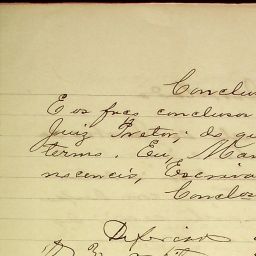 Conclus
E os faço conclusos
Juiz Pretor; do qu
termo. Eu, Man
nocencio, Escriva
Conclos